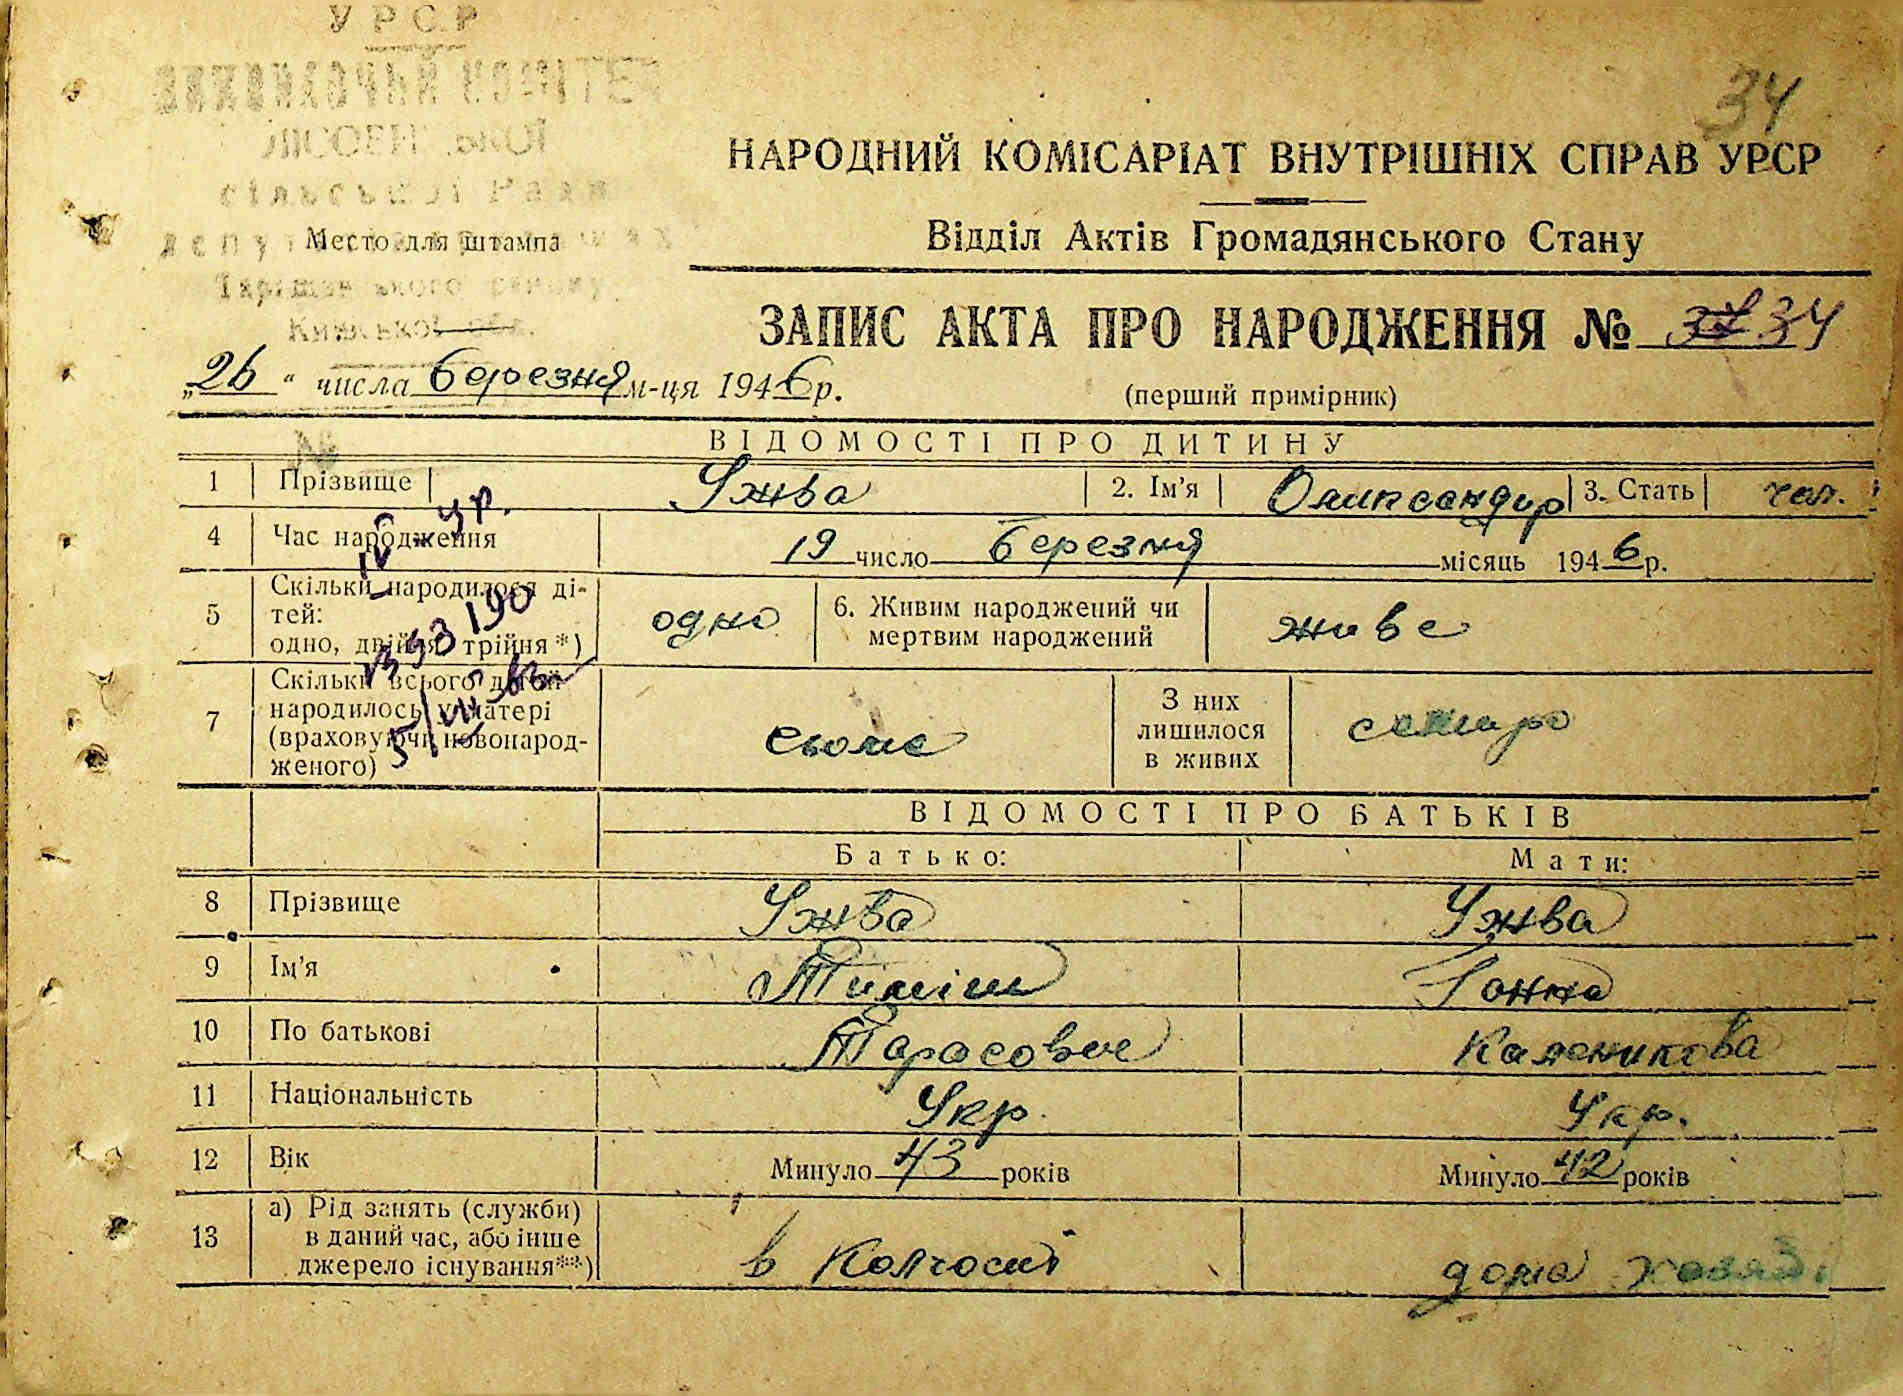 34
УРСР
ВИКОНАВЧИЙ КОМІТЕТ
сільської Ради
Место для штампа
НАРОДНИЙ КОМІСАРІАТ ВНУТРІШНІХ СПРАВ УРСР
Відділ Актів Громадянського Стану
ЗАПИС АКТА ПРО НАРОДЖЕННЯ № 34
„26“ числа березня м-ця 1946 р.
(перший примірник)
ВІДОМОСТІ ПРО ДИТИНУ
1 Прізвище Ужва 2. Ім'я 3. Стать чол.
4 Час народження 19 число березня місяць 1946 р.
5 Скільки народилося ді-
тей:
одно, двійня, трійня*) одно 6. Живим народжений чи
мертвим народжений живе
7 Скільки всього дітей
народилось у матері
(враховуючи новонарод-
женого) сьоме З них
лишилося
в живих
ВІДОМОСТІ ПРО БАТЬКІВ
Батько: Мати:
8 Прізвище Ужва Ужва
9 Ім'я Тиміш
10 По батькові Тарасович Калениковa
11 Національність Укр. Укр.
12 Вік Минуло 43 років Минуло 42 років
13 а) Рід занять (служби)
в даний час, або інше
джерело існування**) в Колгоспі дома